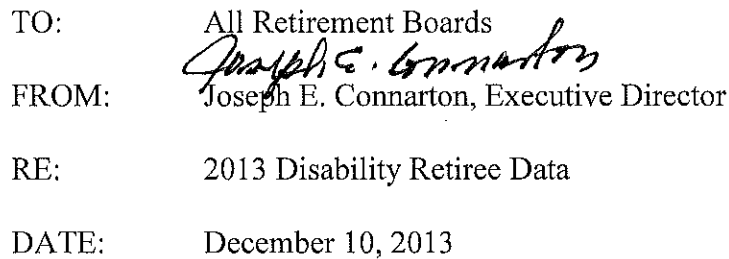 TO: All Retirement Boards
Joseph E. Connarton
FROM: Joseph E. Connarton, Executive Director
RE: 2013 Disability Retiree Data
DATE: December 10, 2013